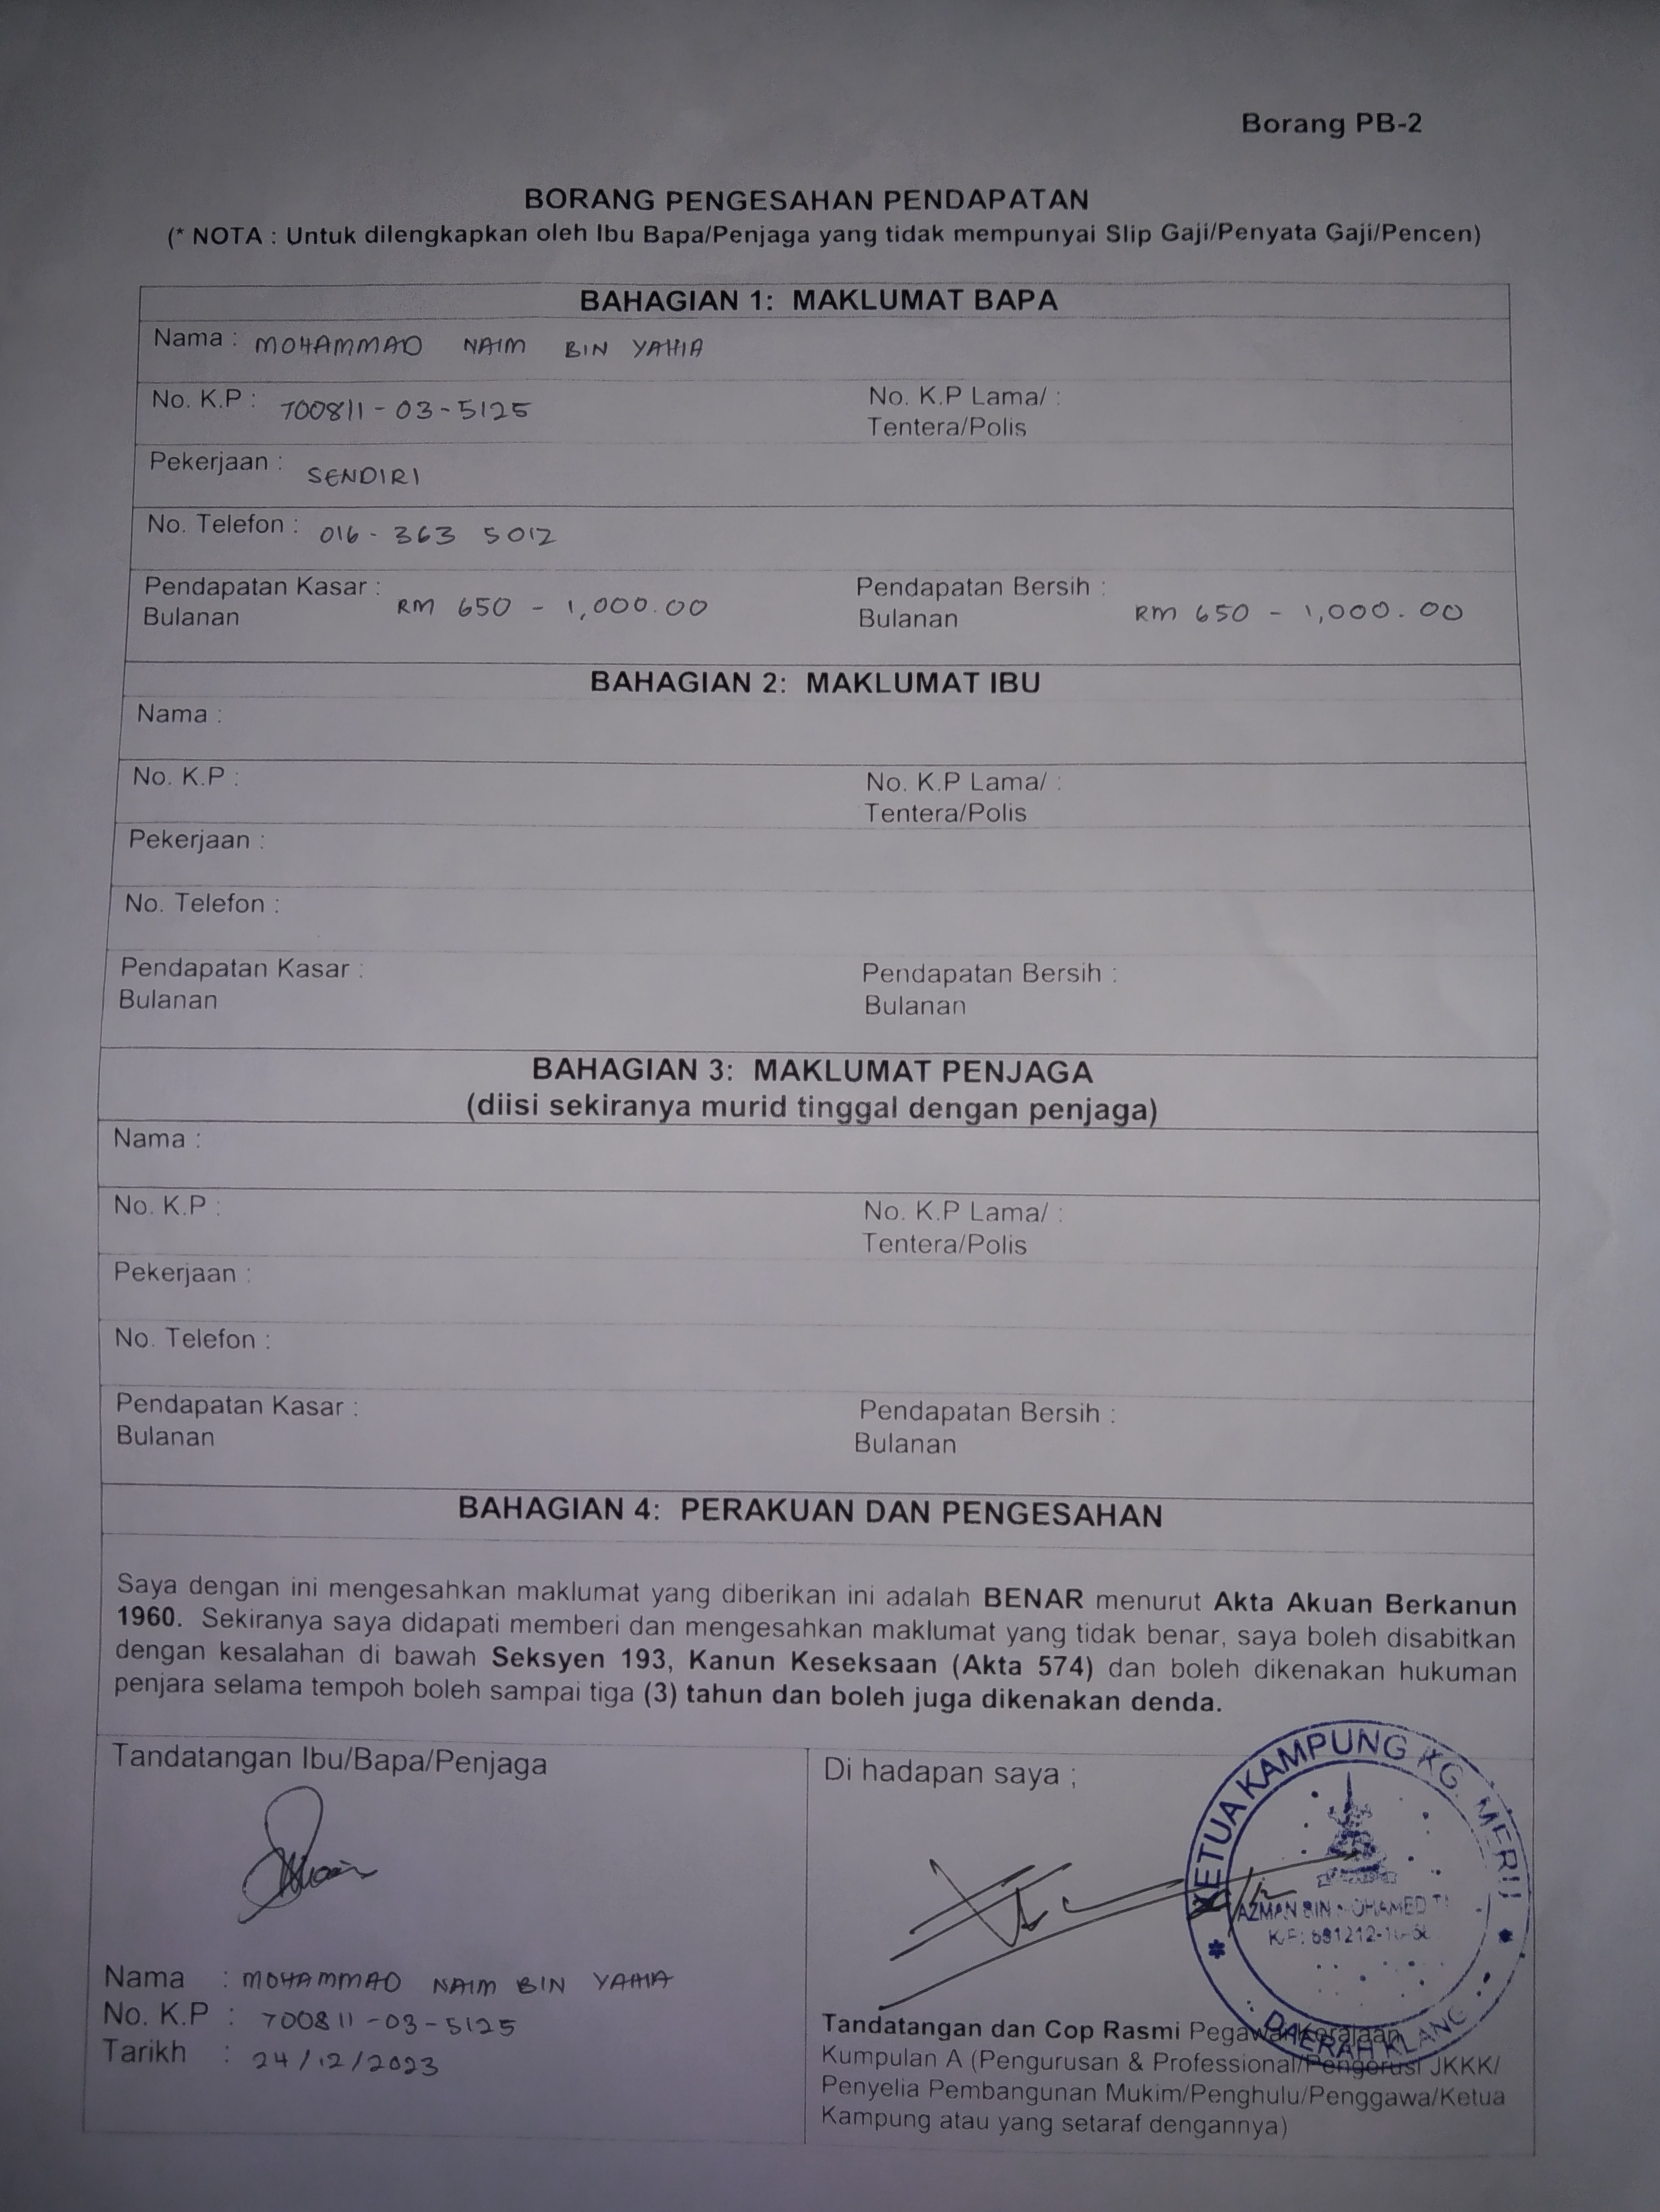 Borang PB-2
BORANG PENGESAHAN PENDAPATAN
(* NOTA : Untuk dilengkapkan oleh Ibu Bapa/Penjaga yang tidak mempunyai Slip Gaji/Penyata Gaji/Pencen)
BAHAGIAN 1: MAKLUMAT BAPA
Nama : MOHAMMAD NAIM BIN YAHIA
No. K.P : 700811-03-5125
No. K.P Lama/ :
Tentera/Polis
Pekerjaan : SENDIRI
No. Telefon : 016-363 5012
Pendapatan Kasar : RM 650 - 1,000.00
Bulanan
Pendapatan Bersih : RM 650 - 1,000.00
Bulanan
BAHAGIAN 2: MAKLUMAT IBU
Nama :
No. K.P :
No. K.P Lama/ :
Tentera/Polis
Pekerjaan :
No. Telefon :
Pendapatan Kasar :
Bulanan
Pendapatan Bersih :
Bulanan
BAHAGIAN 3: MAKLUMAT PENJAGA
(diisi sekiranya murid tinggal dengan penjaga)
Nama :
No. K.P :
No. K.P Lama/ :
Tentera/Polis
Pekerjaan :
No. Telefon :
Pendapatan Kasar :
Bulanan
Pendapatan Bersih :
Bulanan
BAHAGIAN 4: PERAKUAN DAN PENGESAHAN
Saya dengan ini mengesahkan maklumat yang diberikan ini adalah BENAR menurut Akta Akuan Berkanun
1960. Sekiranya saya didapati memberi dan mengesahkan maklumat yang tidak benar, saya boleh disabitkan
dengan kesalahan di bawah Seksyen 193, Kanun Keseksaan (Akta 574) dan boleh dikenakan hukuman
penjara selama tempoh boleh sampai tiga (3) tahun dan boleh juga dikenakan denda.
Tandatangan Ibu/Bapa/Penjaga
Nama : MOHAMMAD NAIM BIN YAHIA
No. K.P : 700811-03-5125
Tarikh : 24/12/2023
Di hadapan saya ;
KETUA KAMPUNG KG. MERU
AZMAN BIN MOHAMED
K/P: 691212-10-
DAERAH KLANG
Tandatangan dan Cop Rasmi Pegawai Kerajaan
Kumpulan A (Pengurusan & Professional/Pengerusi JKKK/
Penyelia Pembangunan Mukim/Penghulu/Penggawa/Ketua
Kampung atau yang setaraf dengannya)